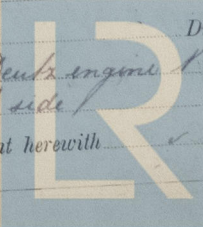 D
Deutz engine
side
nt herewith
LR